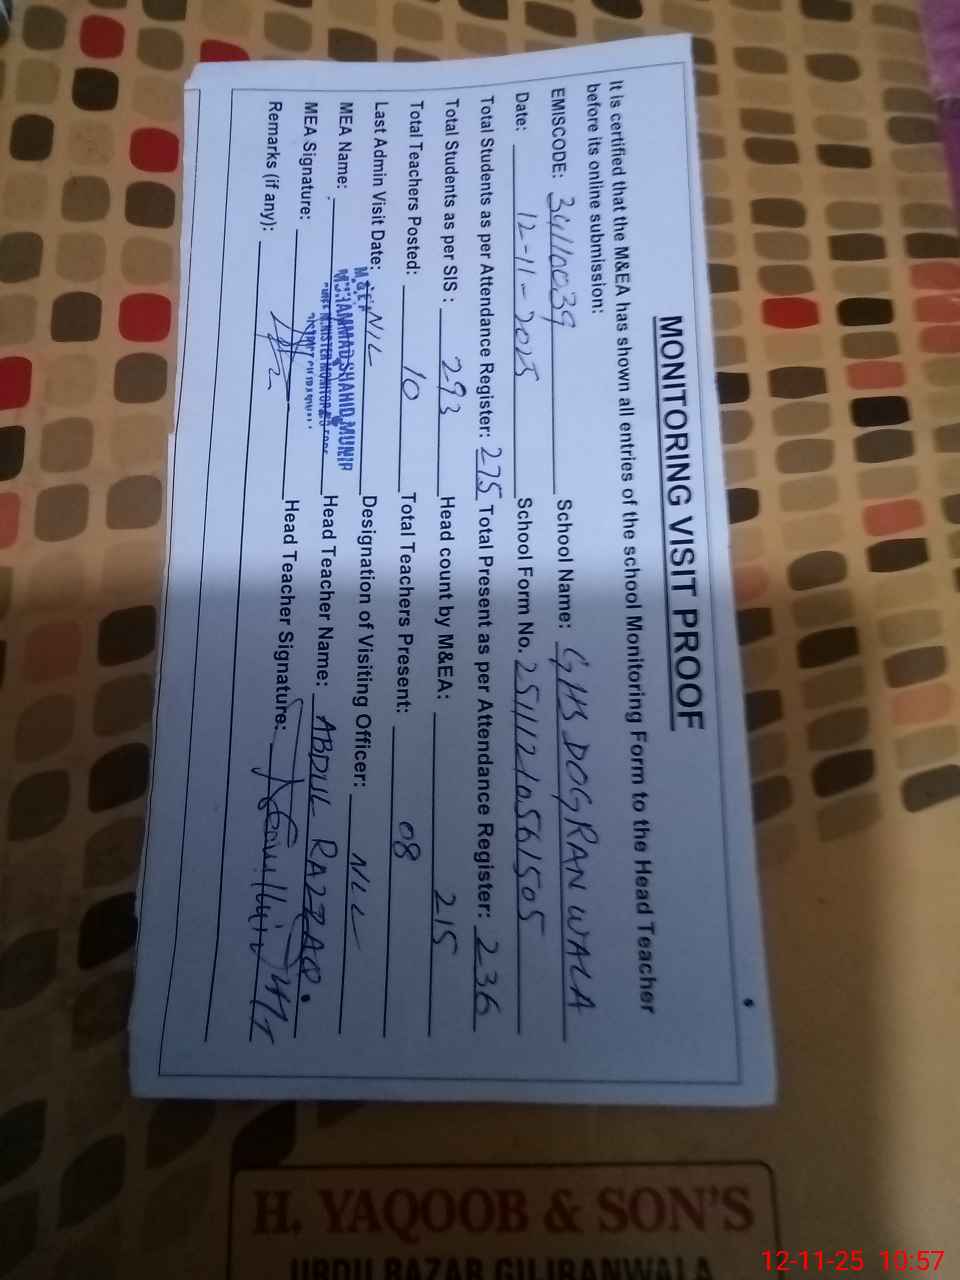 MONITORING VISIT PROOF
It is certified that the M&EA has shown all entries of the school Monitoring Form to the Head Teacher
before its online submission:
EMISCODE: 34110039 School Name: GHS DOGRANWALA
Date: 12-11-2025 School Form No. 25111210561505
Total Students as per Attendance Register: 275 Total Present as per Attendance Register: 236
Total Students as per SIS : 293 Head count by M&EA: 215
Total Teachers Posted: 10 Total Teachers Present: 08
Last Admin Visit Date: NIL Designation of Visiting Officer: NIL
MEA Name: MUHAMMAD SHAHID MUNIR Head Teacher Name: ABDUL RAZZAQ.
MEA Signature: Head Teacher Signature:
Remarks (if any):
H. YAQOOB & SON'S
URDU BAZAR GUJRANWALA
12-11-25 10:57